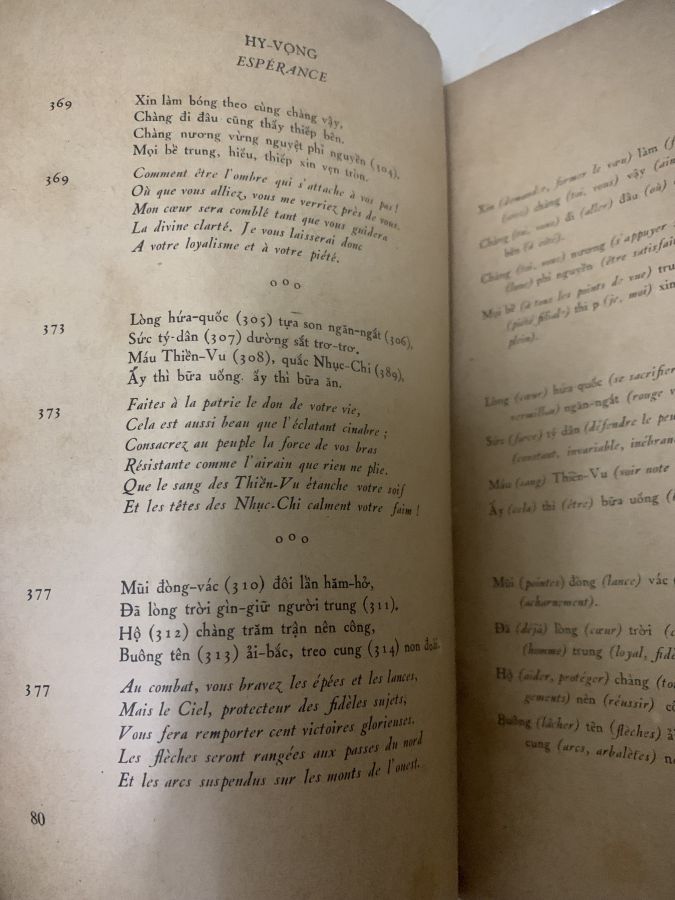 HY-VỌNG
ESPÉRANCE
369 Xin làm bóng theo cùng chàng vậy,
Chàng đi đâu cũng thấy thiếp bên.
Chàng nương vừng nguyệt phỉ nguyền (304).
Mọi bề trung, hiếu, thiếp xin vẹn tròn.
369 Comment être l'ombre qui s'attache à vos pas !
Où que vous alliez, vous me verriez près de vous.
Mon cœur sera comblé tant que vous guidera
La divine clarté. Je vous laisserai donc
A votre loyalisme et à votre piété.
o o o
373 Lòng hứa-quốc (305) tựa son ngăn-ngắt (306),
Sức tý-dân (307) dường sắt trơ-trơ.
Máu Thiền-Vu (308), quắc Nhục-Chi (389),
Ấy thì bữa uống. ấy thì bữa ăn.
373 Faites à la patrie le don de votre vie,
Cela est aussi beau que l'éclatant cinabre ;
Consacrez au peuple la force de vos bras
Résistante comme l'airain que rien ne plie.
Que le sang des Thiền-Vu étanche votre soif
Et les têtes des Nhục-Chi calment votre faim !
o o o
377 Mũi đòng-vác (310) đôi lần hăm-hở,
Đã lòng trời gìn-giữ người trung (311).
Hộ (312) chàng trăm trận nên công,
Buông tên (313) ải-bắc, treo cung (314) non đoài.
377 Au combat, vous bravez les épées et les lances,
Mais le Ciel, protecteur des fidèles sujets,
Vous fera remporter cent victoires glorieuses.
Les flèches seront rangées aux passes du nord
Et les arcs suspendus sur les monts de l'ouest.
80
Xin (demander, former le vœu) làm
(avec) chàng (toi, vous) vậy
Chàng (toi, vous) đi (aller) đâu (où)
bên (à côté).
Chàng (toi, vous) nương (s'appuyer
(lune) phỉ nguyền (être satisfait
Mọi bề (à tous les points de vue)
(piété filiale) thi p (je, moi) xin
plein).
Lòng (cœur) hứa quốc (se sacrifier
vermillon) ngăn-ngắt (rouge
Sức (force) tý dân (défendre le
(constant, invariable,
Máu (sang) Thiền-Vu (voir note
Ấy (cela) thì (être) bữa uống
Mũi (pointes) đòng (lance) vác
(acharnement).
Đã (déjà) lòng (cœur) trời
(homme) trung (loyal,
Hộ (aider, protéger) chàng
gements) nên (réussir)
Buông (lâcher) tên (flèches)
cung (arcs, arbalètes)